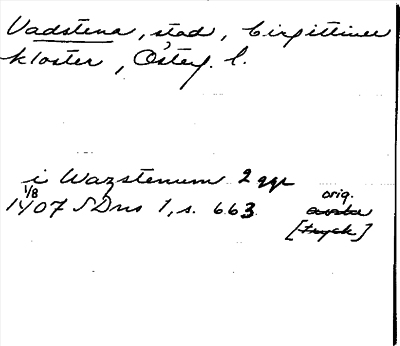 Vadstena, stad, birgittiner
kloster, Österg. l.
i Wazstenum 2 ggr
1/8 orig.
1407 SDns 1, s. 663 avskr
[tryck]